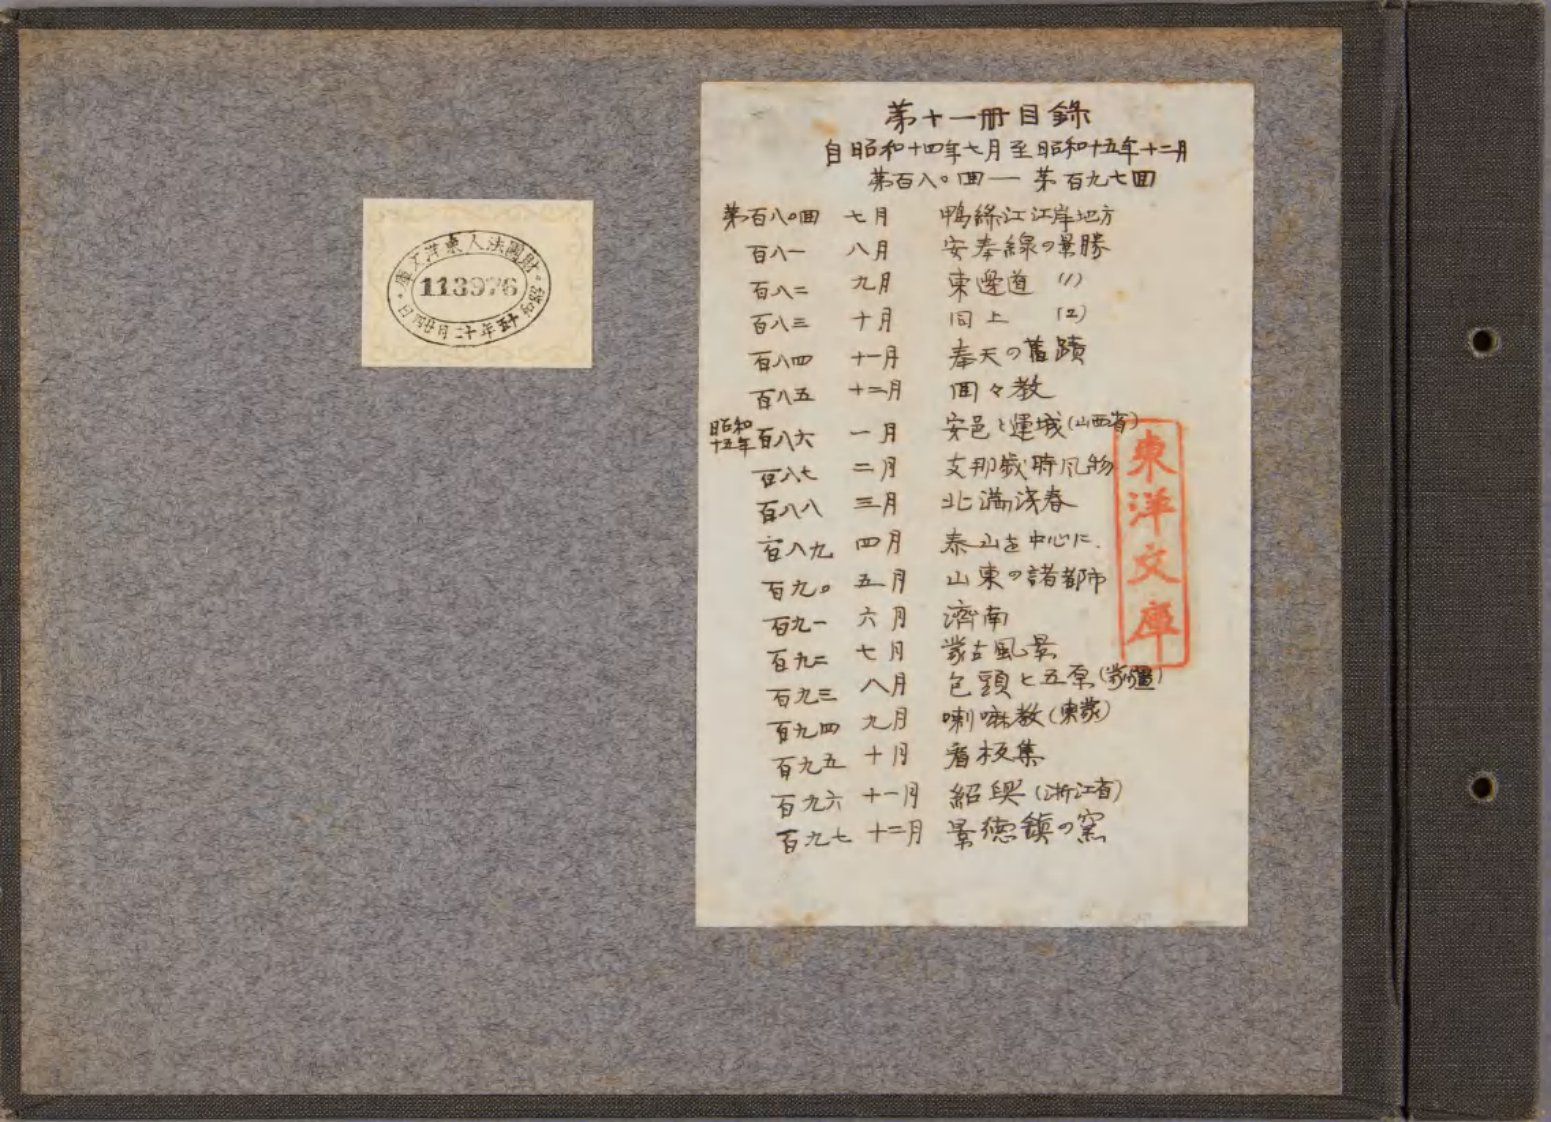 第十一冊目錄
自昭和十四年七月至昭和十五年十二月
第百八〇回―第百九七回
第百八〇回 七月 鴨綠江江岸地方
百八一 八月 安奉線の景勝
百八二 九月 東邊道 (1)
百八三 十月 同上 (2)
百八四 十一月 奉天の舊蹟
百八五 十二月 回々教
昭和十五年 百八六 一月 安邑と運城(山西省)
百八七 二月 支那歲時風物
百八八 三月 北滿浅春
百八九 四月 泰山を中心に.
百九〇 五月 山東の諸都市
百九一 六月 濟南
百九二 七月 蒙古風景
百九三 八月 包頭と五原(蒙疆)
百九四 九月 喇嘛教(東蒙)
百九五 十月 看板集
百九六 十一月 紹興(浙江省)
百九七 十二月 景德鎮の窯
東洋文庫
財團法人東洋文庫
113976
昭和十五年十二月廿四日